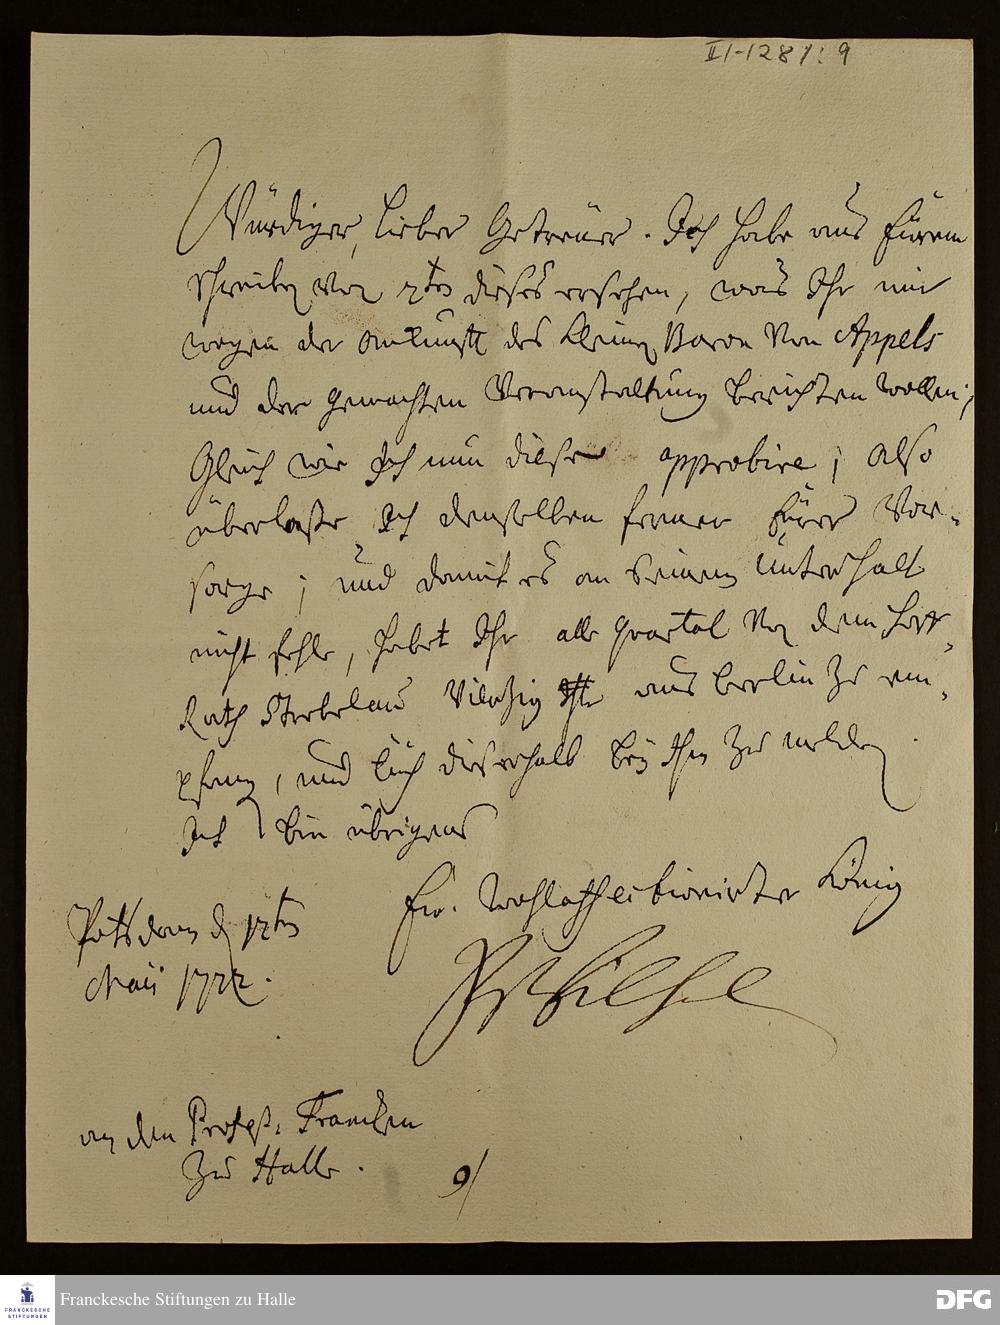 II-1-128/1:9
Würdiger, Lieber Getreüer. Ich habe aus Eürem
Schreiben von 7ten dieses ersehen, was Ihr mir
wegen der Ankunfft des kleinen Baron von Appels
und der gemachten Veranstaltung berichten wollen;
Gleich wie Ich nun diese approbire; also
überlaße Ich denselben ferner Eürer Vor-
sorge; und damit es an seinem Unterhalt
nicht fehle, habet Ihr alle Quartal von dem Hoff-
Rath Strebelau Viertzig Thlr aus Berlin zu em-
pfangen, und Eüch dieserhalb beÿ Ihm zu melden
Ich bin übrigens
Ew. Wohlaffectionirter König
FrWilhelm
Potsdam d. 12ten
Maii 1722.
an den Profeß. Francken
Zu Halle.
9/
Franckesche Stiftungen zu Halle
FRANCKESCHE
STIFTUNGEN
DFG